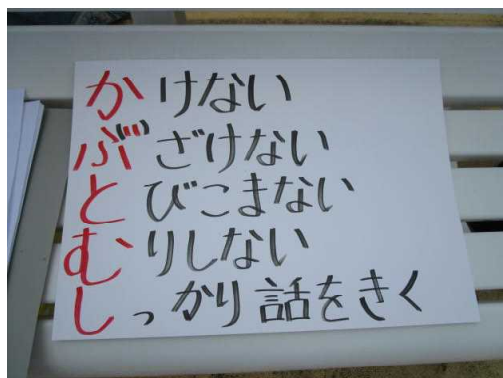 かけない
ぶざけない
とびこまない
むりしない
しっかり話をきく